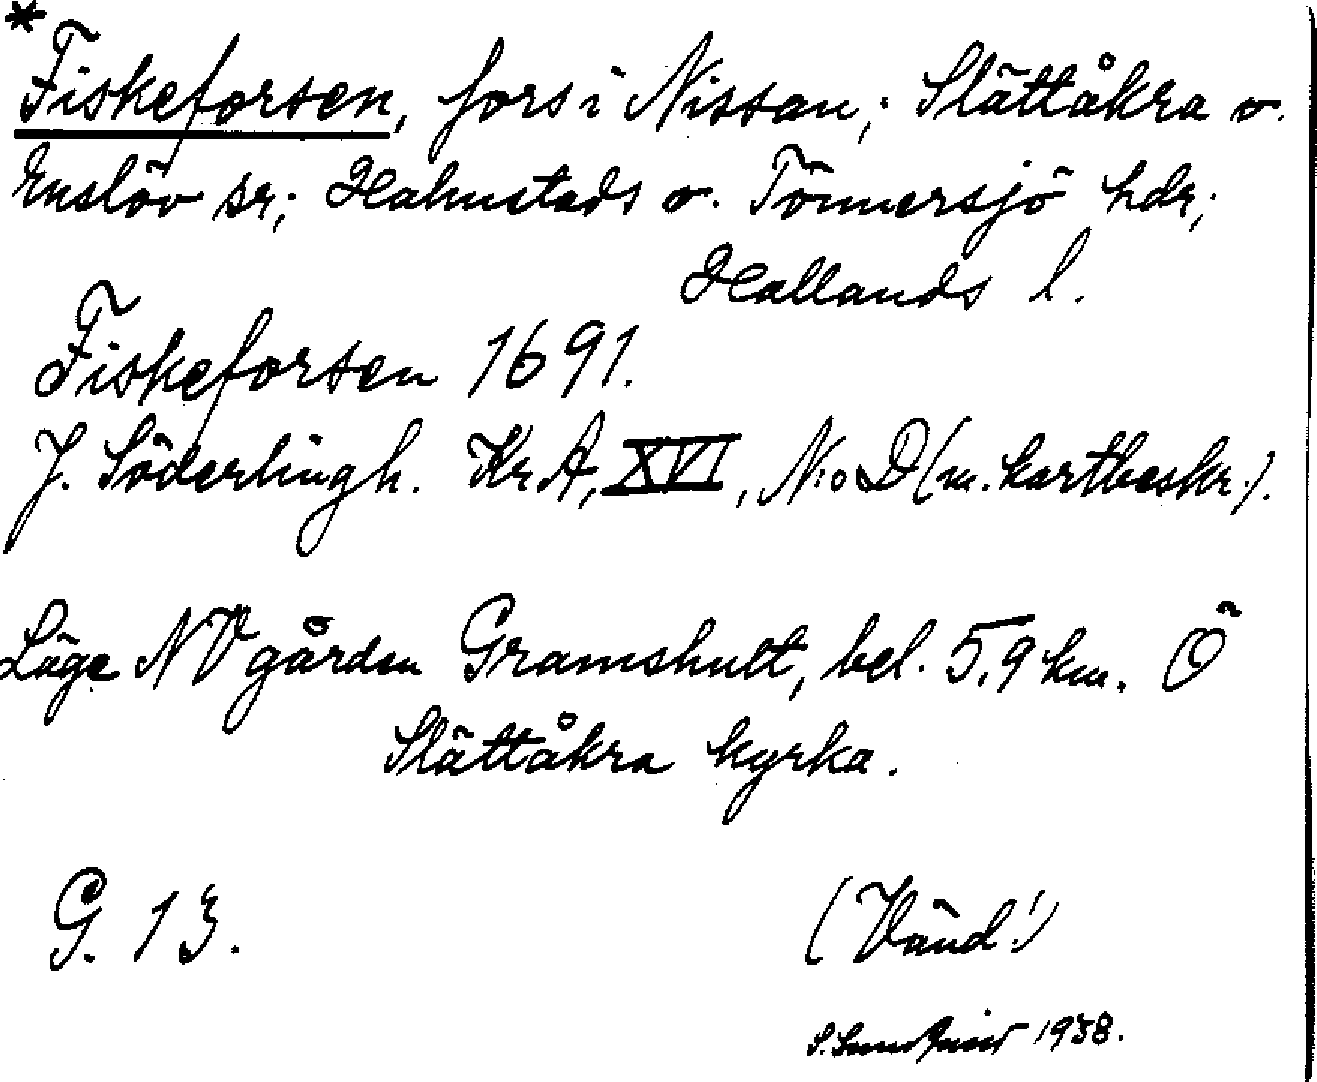 *Fiskeforsen, fors i Nissan; Slättåkra o.
Enslöv sr; Halmstads o. Tönnersjö hdr;
Hallands l.
Fiskeforsen 1691.
J. Söderlingh. Kr A, XVI, N:o D (m. kartbeskr.).
Läge NV gården Gramshult, bel. 5,9 km. Ö
Slättåkra kyrka.
G. 13.
(Vänd!)
S. 1938.